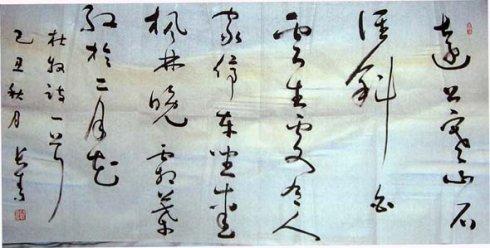 遠上寒山石
徑斜白
雲生處有人
家停車坐愛
楓林晚霜葉
紅於二月花
杜牧詩一首
乙丑秋月